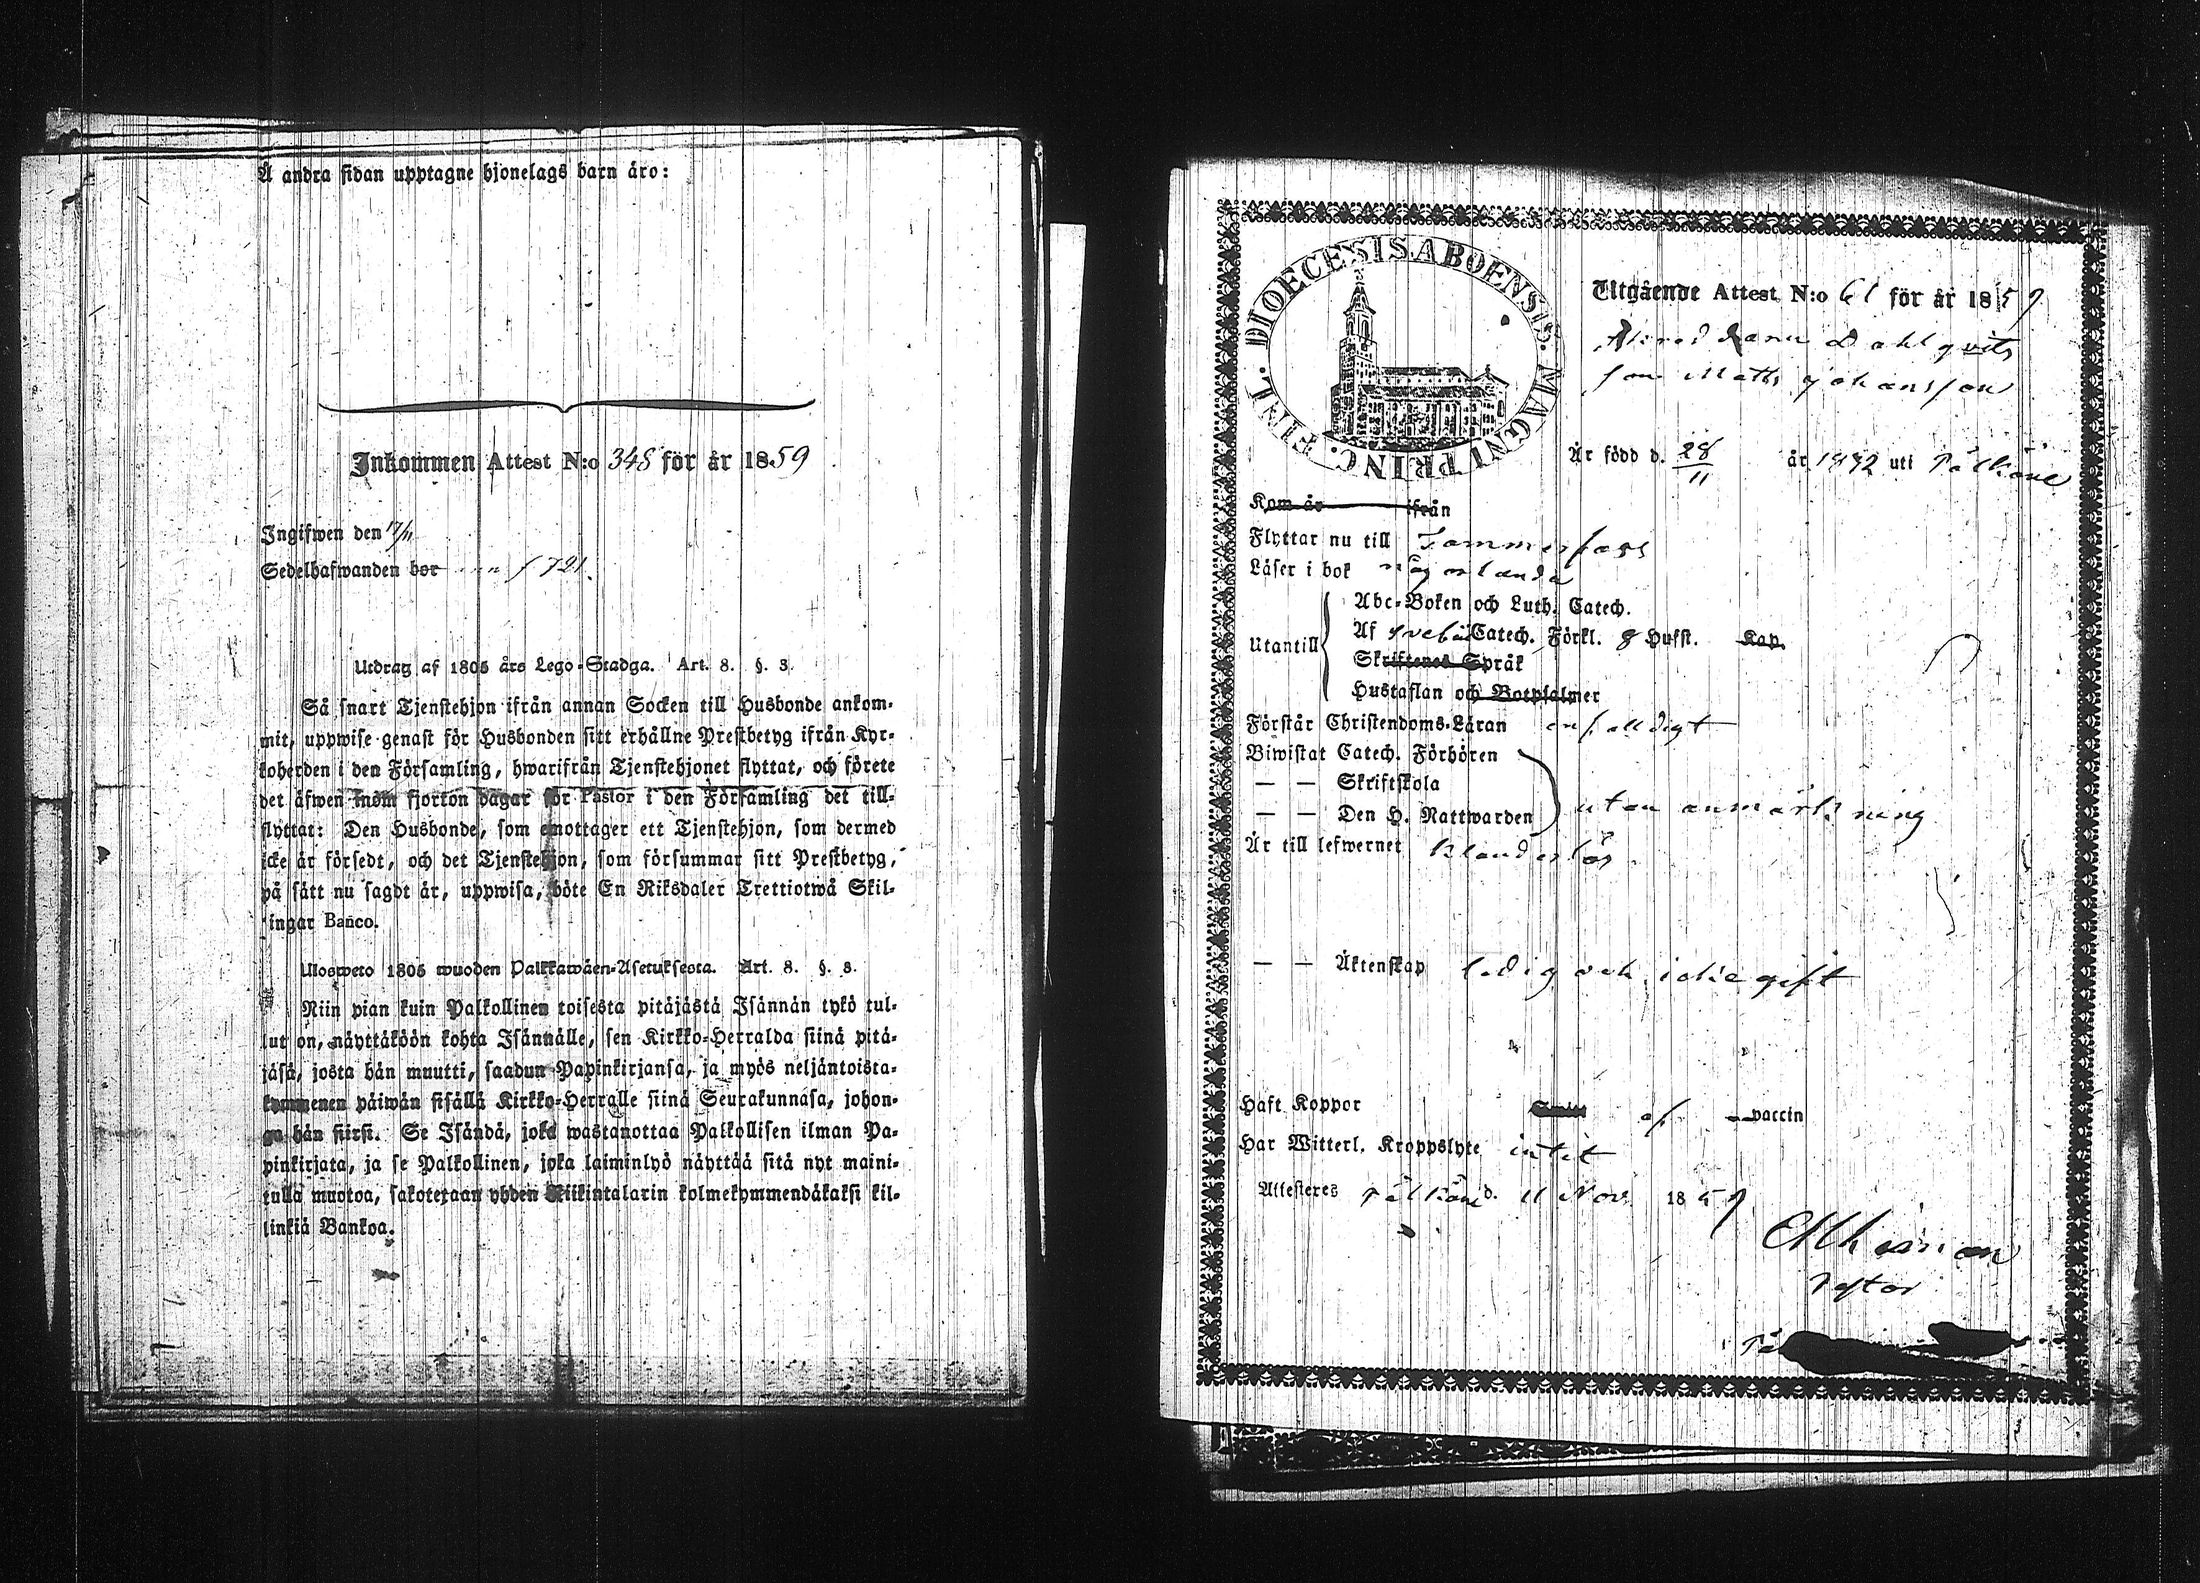 Å andra sidan upptagne hjonelags barn äro:
Inkommen Attest N:o 348 för år 1859
Ingifwen den 17/11
Sedelhafwanden bor f 721.
Utdrag af 1805 års Lego-Stadga. Art. 8. §. 3.
Så snart Tjenstehjon ifrån annan Socken till Husbonde ankom-
mit, uppwise genast för Husbonden sitt erhållne Prestbetyg ifrån Kyr-
koherden i den Församling, hwarifrån Tjenstehjonet flyttat, och förete
det äfwen inom fjorton dagar för Pastor i den Församling det till-
flyttat: Den Husbonde, som emottager ett Tjenstehjon, som dermed
icke är försedt, och det Tjenstehjon, som försummar sitt Prestbetyg,
på sätt nu sagdt är, uppwisa, böte En Riksdaler Trettiotwå Skil-
lingar Banco.
Ulosweto 1805 wuoden Palkkawäen-Asetuksesta. Art. 8. §. 3.
Niin pian kuin Palkollinen toisesta pitäjästä Isännän tykö tul-
lut on, näyttäköön kohta Isännälle, sen Kirkko-Herralda siinä pitä-
jäsä, josta hän muutti, saadun Papinkirjansa, ja myös neljäntoista-
kymmenen päiwän sisällä Kirkko-Herralle siinä Seurakunnasa, johon-
ga hän siirsi. Se Isändä, joka wastanottaa Palkollisen ilman Pa-
pinkirjata, ja se Palkollinen, joka laiminlyö näyttää sitä nyt maini-
tulla muotoa, sakotetaan yhden Riikintalarin kolmekymmendäkaksi kil-
linkiä Bankoa.
FINL. DIOECESIS ABOENSIS. MAGNI PRINC.
Utgående Attest N:o 61 för år 1859
Dahlqvists
son Matts Johansson
Är född d. 28/11 år 1842 uti Pälkäne
Kom år ifrån
Flyttar nu till Tammerfors
Läser i bok någorlunda
Utantill
Abc-Boken och Luth. Catech.
Af Svebii Catech. Förkl. 8 Hufst. Kap.
Skriftenes Språk
Hustaflan och Botpsalmer
Förstår Christendoms-Läran enfalldigt
Biwistat Catech. Förhören
— — Skriftskola
— — Den H. Nattwarden
utan anmärkning
Är till lefwernet klanderlös
— — Äktenskap ledig och icke gift
Haft Koppor af vaccin
Har Witterl. Kroppslyte intet
Attesteres Pälkäne d. 11 Nov. 1859